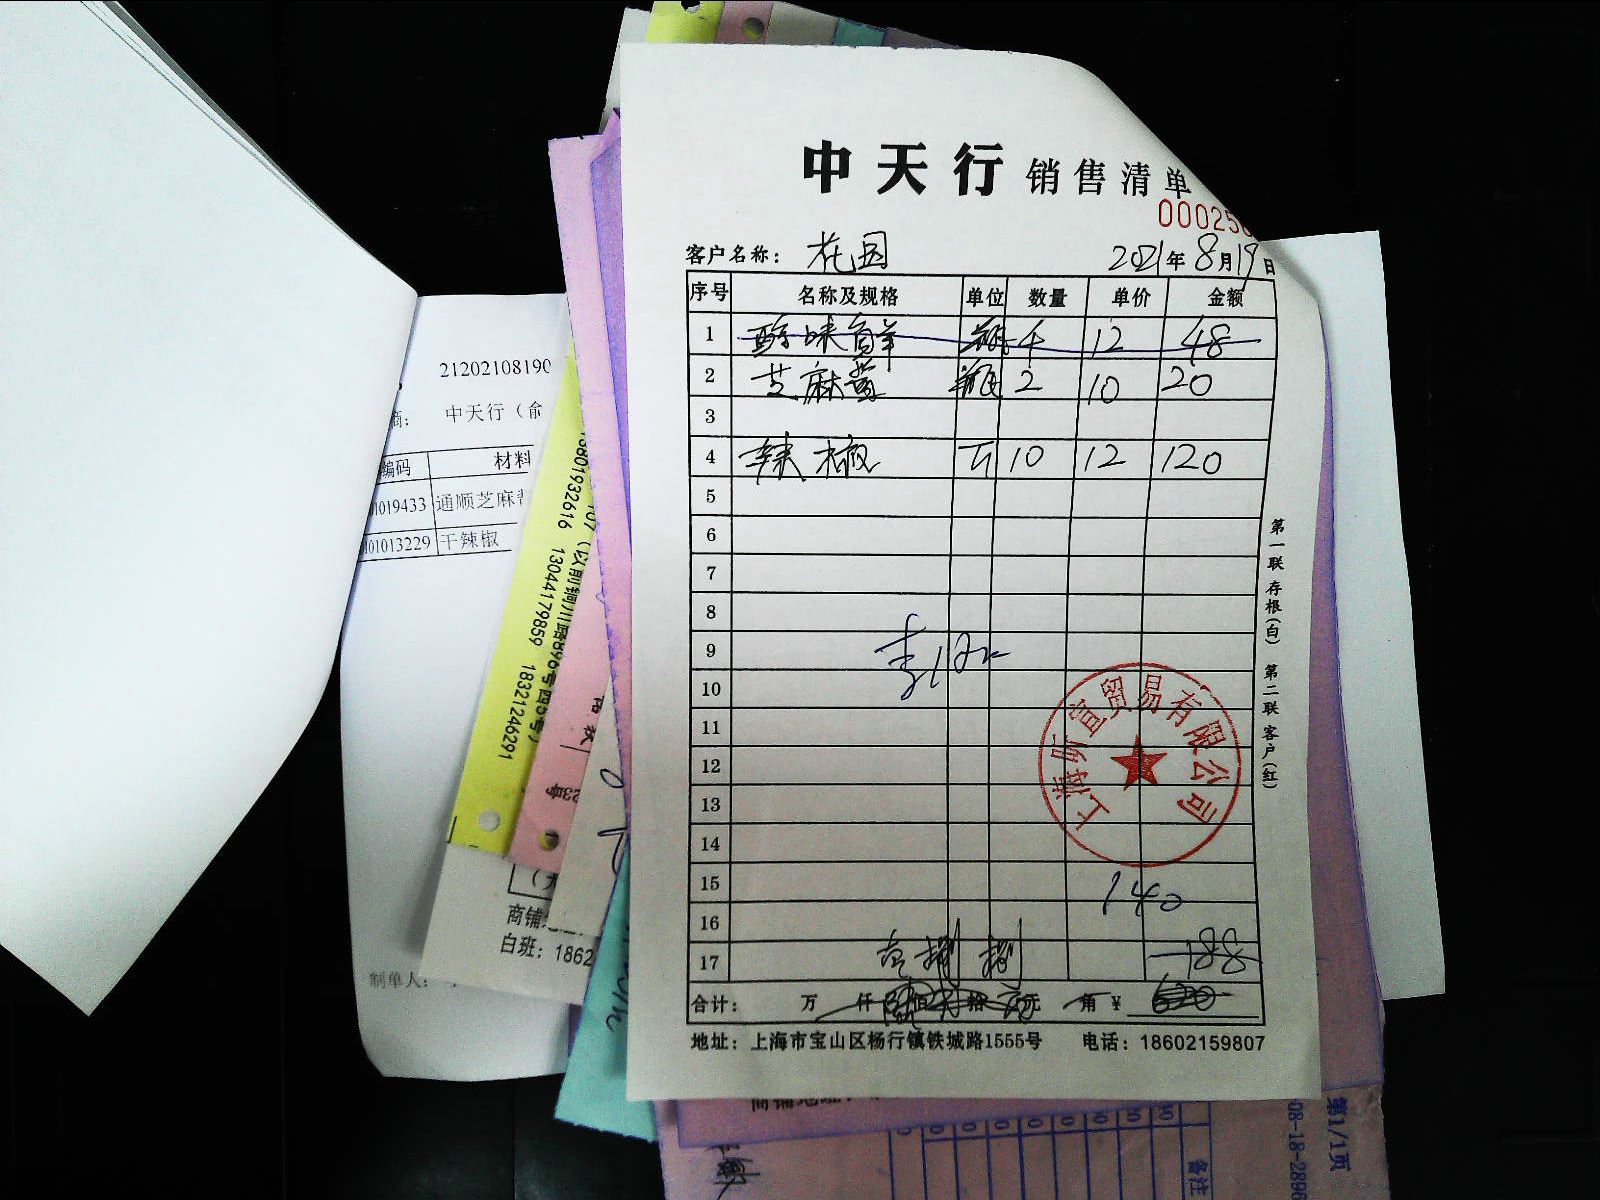 中天行 销售清单
00025
客户名称： 花园 2021年8月19日
序号 名称及规格 单位 数量 单价 金额
1 醇味 4 12 48
2 芝麻酱 瓶 2 10 20
3
4 辣椒 斤 10 12 120
5
6
7
8
9
10
11
12
13
14
15 140
16
17 壹捌捌 188
合计： 万 仟 佰 拾 元 角 ¥
地址：上海市宝山区杨行镇铁城路1555号 电话：18602159807
第一联 存根(白) 第二联 客户(红)
宜贸易有限公司
21202108190
中天行（俞
编码 材料
019433 通顺芝麻酱
01013229 干辣椒
制单人：
13801932616 13044179859 18321246291
107（以前铜川路896号四5号）
商铺
白班：1862
备注
第1/1页
-08-18-2896